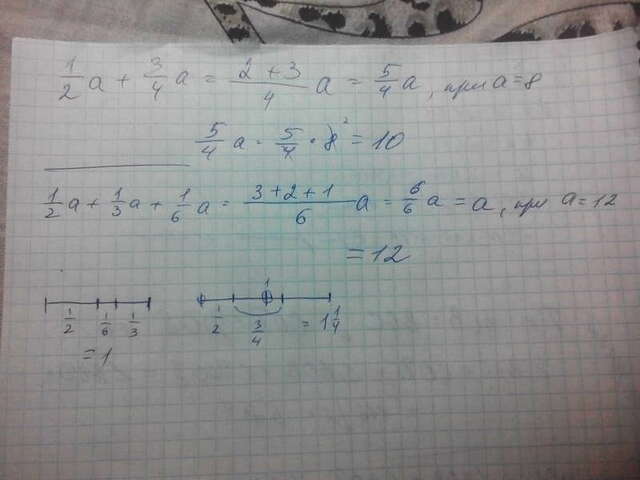 1/2 a + 3/4 a = (2+3)/4 a = 5/4 a, при a=8
5/4 a = 5/4 · 8² = 10
1/2 a + 1/3 a + 1/6 a = (3+2+1)/6 a = 6/6 a = a, при a=12
=12
1/2 1/6 1/3
=1
1
1/2 3/4 = 1 1/4